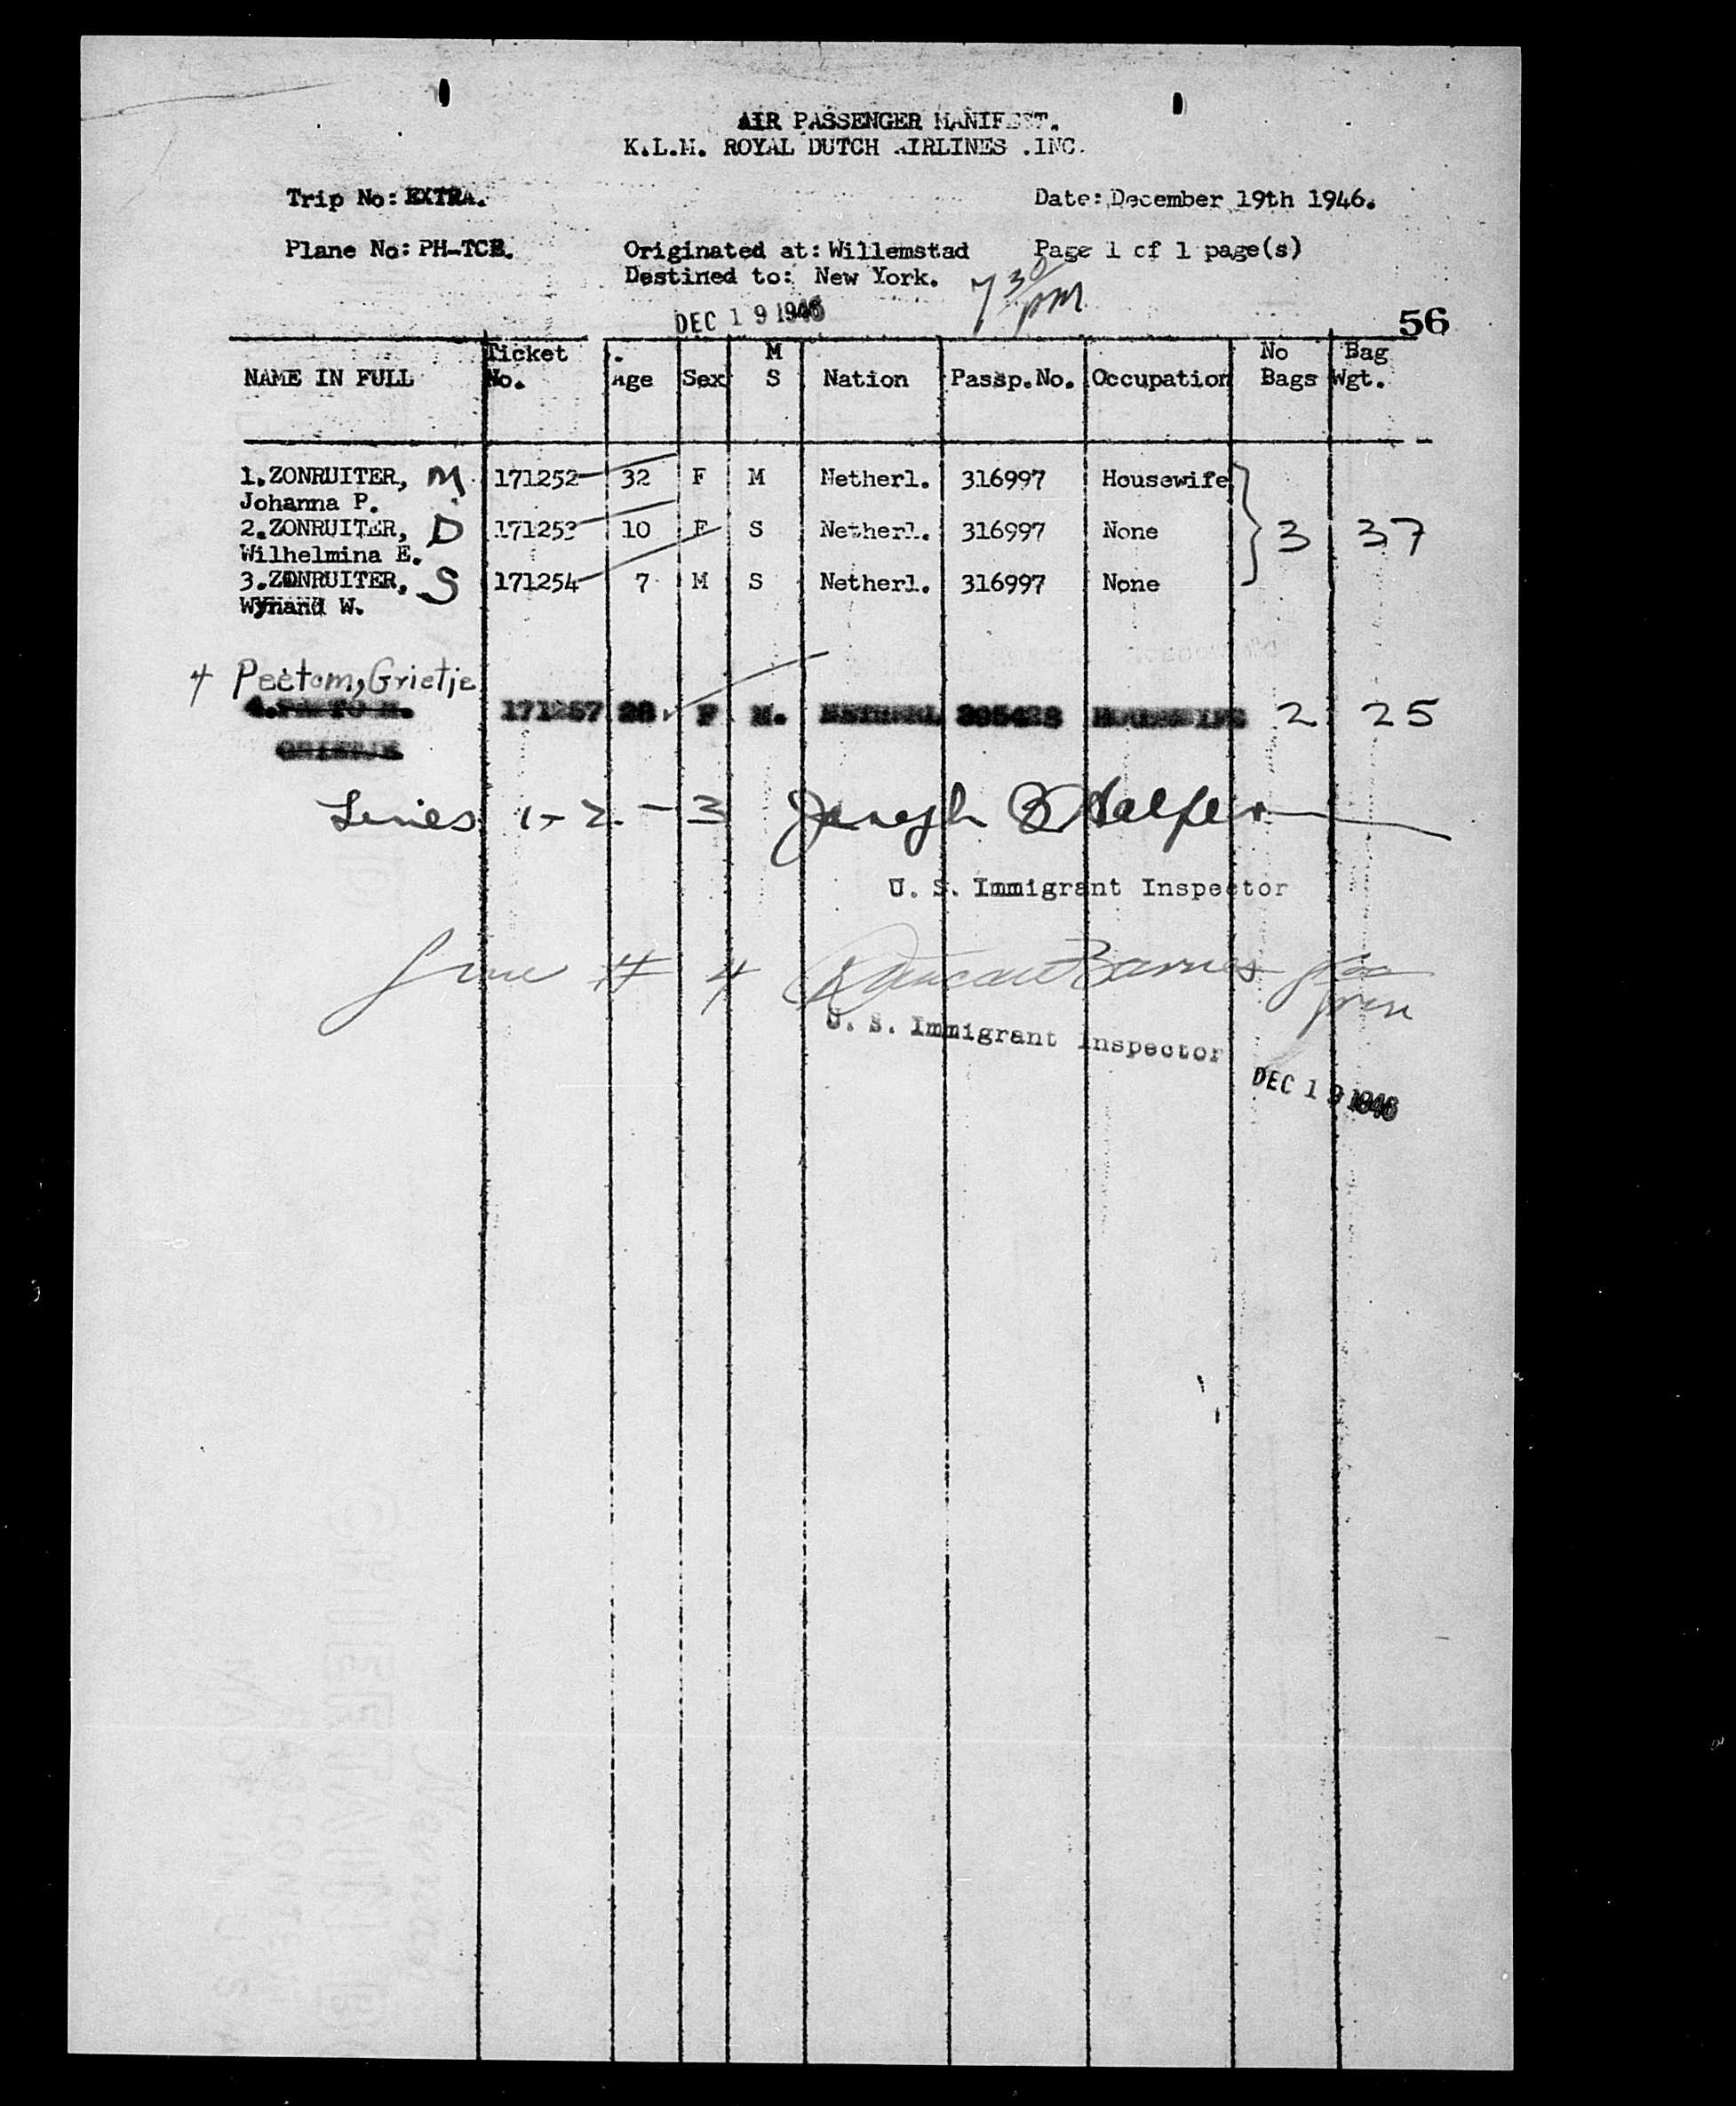 AIR PASSENGER MANIFEST.
K.L.M. ROYAL DUTCH AIRLINES .INC.
Trip No: EXTRA. Date: December 19th 1946.
Plane No: PH-TCB. Originated at: Willemstad Page 1 of 1 page(s)
Destined to: New York. 7 30 pm
DEC 19 1946
56
NAME IN FULL Ticket No. Age Sex M S Nation Passp.No. Occupation No Bags Bag Wgt.
1.ZONRUITER, M 171252 32 F M Netherl. 316997 Housewife
Johanna P.
2.ZONRUITER, D 171253 10 F S Netherl. 316997 None 3 37
Wilhelmina E.
3.ZONRUITER, S 171254 7 M S Netherl. 316997 None
Wynand W.
4 Peetom, Grietje
171257 28 F M. NETHERL. HOUSEWIFE 2 25
Lines 1-2-3 Joseph B Halper
U. S. Immigrant Inspector
Line # 4 Duncan Barnes
U. S. Immigrant Inspector
DEC 19 1946